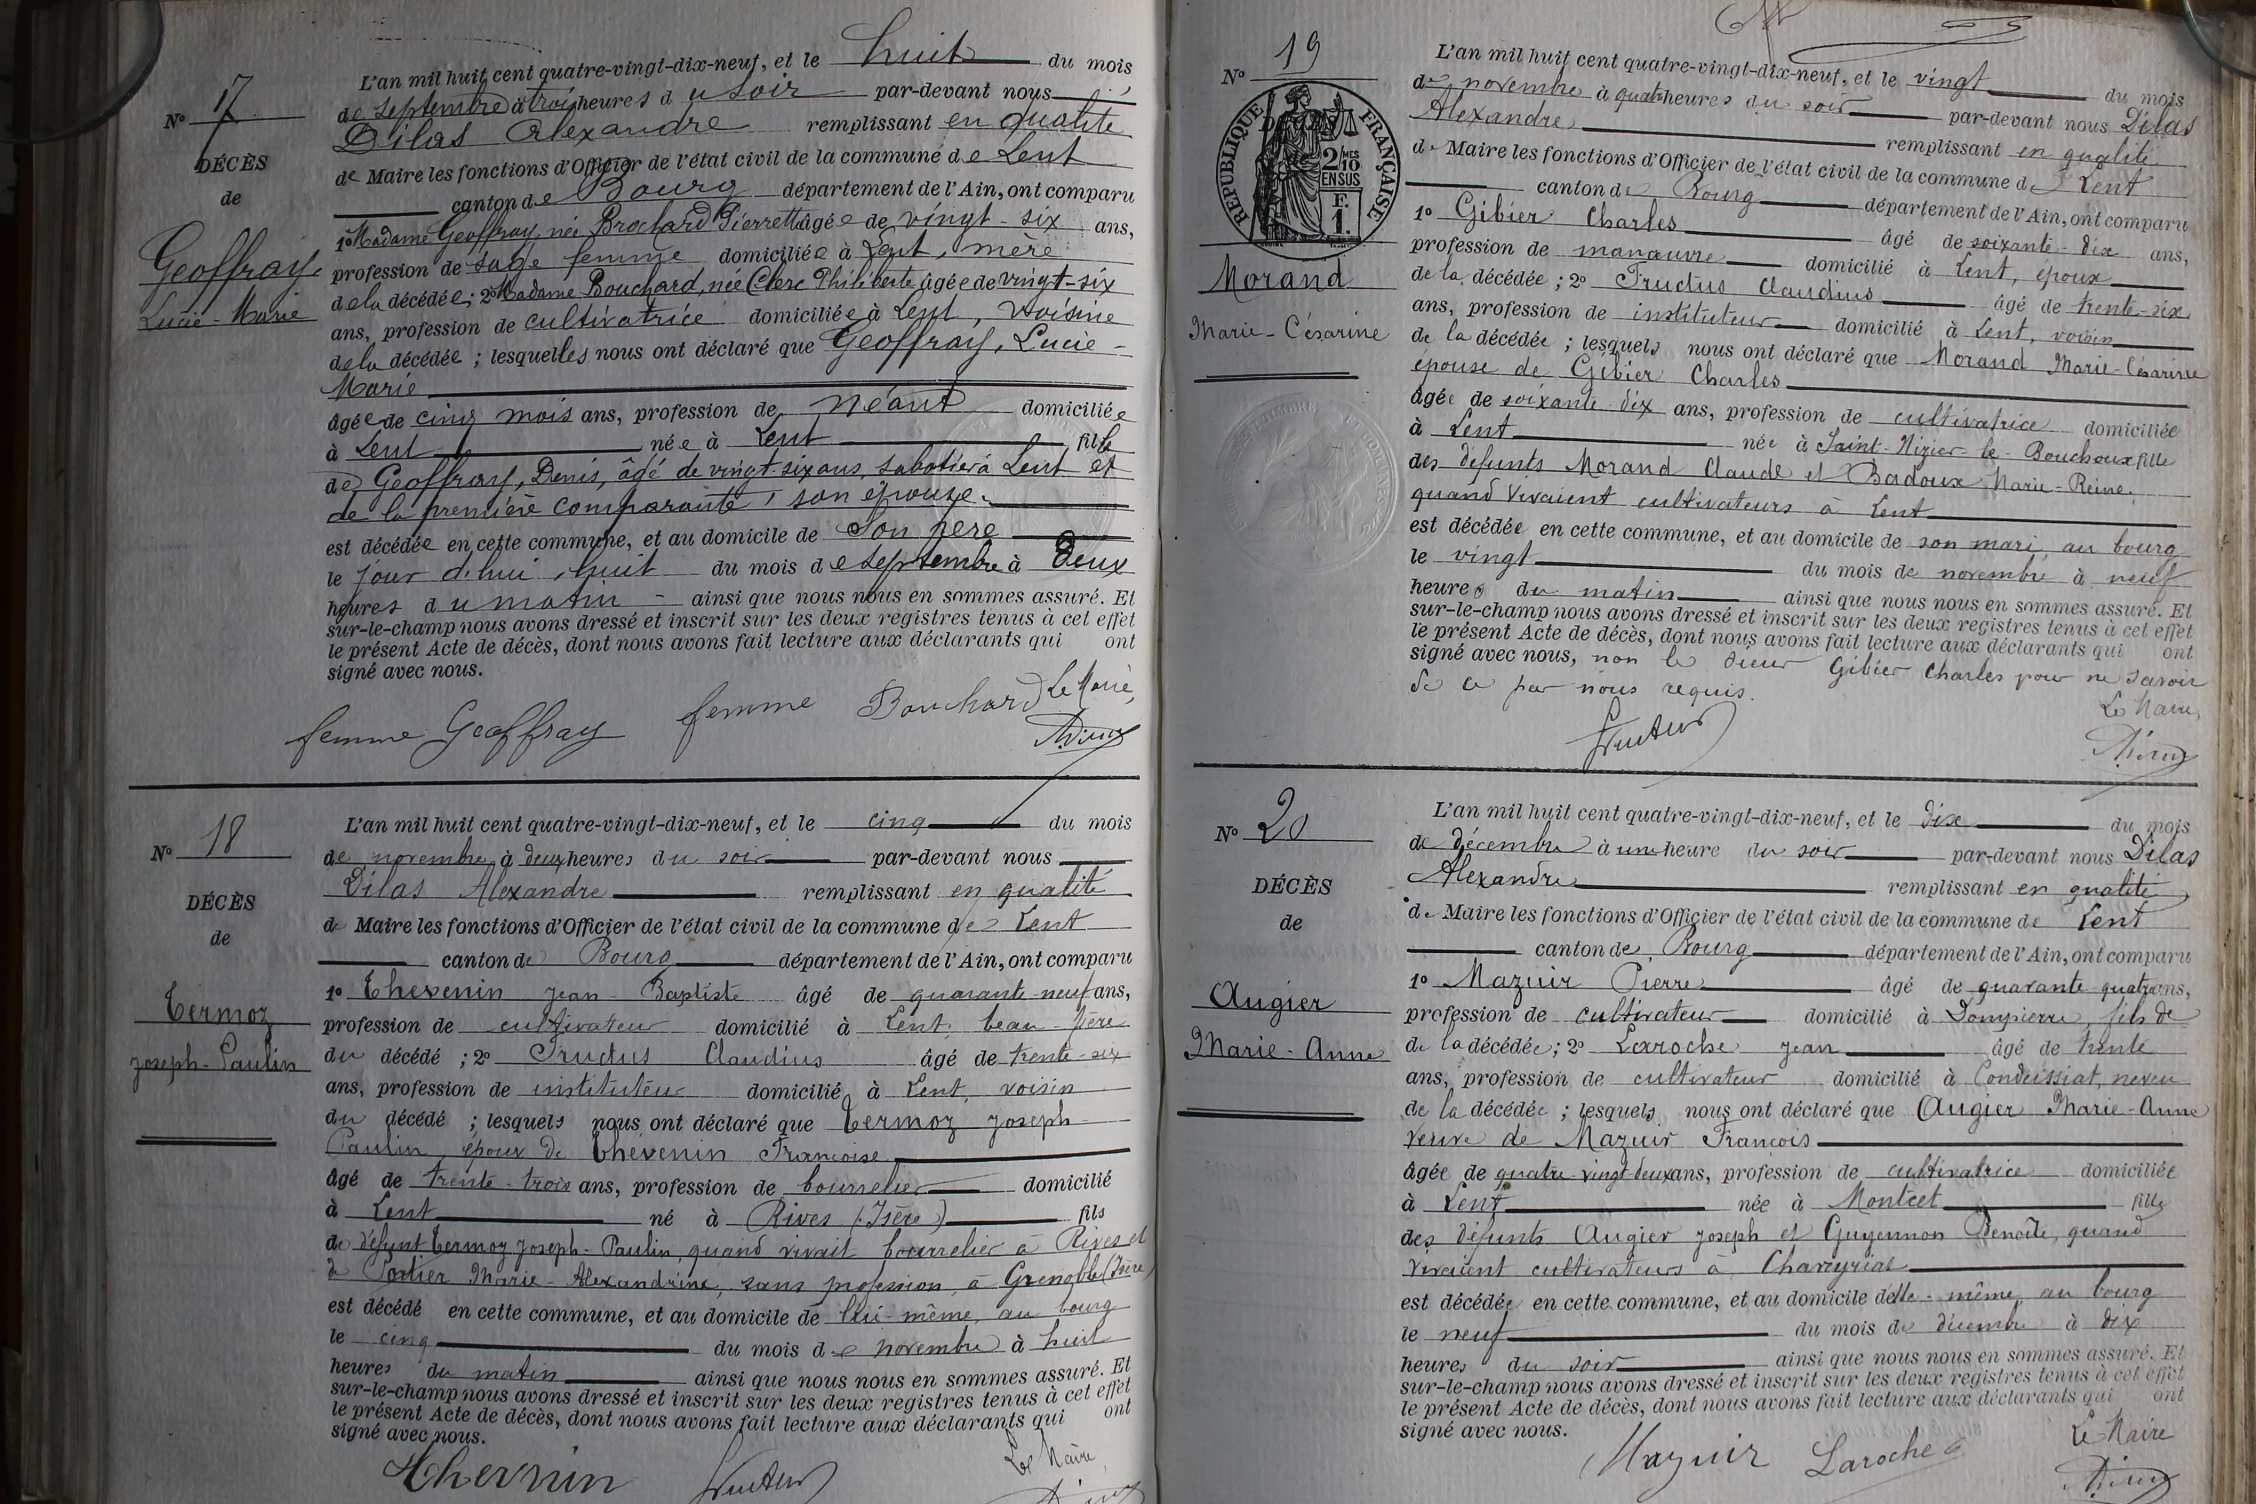 N° 17
DÉCÈS
de
Geoffray,
Lucie-Marie
L'an mil huit cent quatre-vingt-dix-neuf, et le huit du mois
de septembre à trois heures du soir par-devant nous
Dilas Alexandre remplissant en qualité
de Maire les fonctions d'Officier de l'état civil de la commune de Lent
canton de Bourg département de l'Ain, ont comparu
1° Madame Geoffray née Brochard Pierrette âgée de vingt-six ans,
profession de sage femme domiciliée à Lent, mère
de la décédée; 2° Madame Bouchard, née Clerc Philiberte âgée de vingt-six
ans, profession de cultivatrice domiciliée à Lent, voisine
de la décédée; lesquelles nous ont déclaré que Geoffray, Lucie-
Marie
âgée de cinq mois ans, profession de néant domiciliée
à Lent née à Lent fille
de Geoffray, Denis, âgé de vingt-six ans, sabotier à Lent et
de la première comparante, son épouse.
est décédée en cette commune, et au domicile de son père
le jour d'hui, huit du mois de septembre à deux
heures du matin - ainsi que nous nous en sommes assuré. Et
sur-le-champ nous avons dressé et inscrit sur les deux registres tenus à cet effet
le présent Acte de décès, dont nous avons fait lecture aux déclarants qui ont
signé avec nous.
femme Geoffray femme Bouchard Le Maire,
N° 18
DÉCÈS
de
Termoz
Joseph-Paulin
L'an mil huit cent quatre-vingt-dix-neuf, et le cinq du mois
de novembre à deux heures du soir par-devant nous
Dilas Alexandre remplissant en qualité
de Maire les fonctions d'Officier de l'état civil de la commune de Lent
canton de Bourg département de l'Ain, ont comparu
1° Thevenin Jean-Baptiste âgé de quarante-neuf ans,
profession de cultivateur domicilié à Lent, beau-père
du décédé; 2° Fructus Claudius âgé de trente-six
ans, profession de instituteur domicilié à Lent, voisin
du décédé; lesquels nous ont déclaré que Termoz Joseph-
Paulin, époux de Thévenin Françoise
âgé de trente-trois ans, profession de bourrelier domicilié
à Lent né à Rives (Isère) fils
de défunt Termoz Joseph-Paulin, quand vivait bourrelier à Rives et
de Portier Marie-Alexandrine, sans profession, à Grenoble (Isère)
est décédé en cette commune, et au domicile de lui-même, au bourg
le cinq du mois de novembre à huit
heures du matin ainsi que nous nous en sommes assuré. Et
sur-le-champ nous avons dressé et inscrit sur les deux registres tenus à cet effet
le présent Acte de décès, dont nous avons fait lecture aux déclarants qui ont
signé avec nous.
Thevenin Fructus Le Maire,
N° 19
RÉPUBLIQUE FRANÇAISE
2/10 MES
EN SUS
F.
1.
Morand
Marie-Césarine
L'an mil huit cent quatre-vingt-dix-neuf, et le vingt du mois
de novembre à quatre heures du soir par-devant nous Dilas
Alexandre remplissant en qualité
de Maire les fonctions d'Officier de l'état civil de la commune de Lent
canton de Bourg département de l'Ain, ont comparu
1° Gibier Charles âgé de soixante-dix ans,
profession de manœuvre domicilié à Lent, époux
de la décédée; 2° Fructus Claudius âgé de trente-six
ans, profession de instituteur domicilié à Lent, voisin
de la décédée; lesquels nous ont déclaré que Morand Marie-Césarine
épouse de Gibier Charles
âgée de soixante-dix ans, profession de cultivatrice domiciliée
à Lent née à Saint-Nizier-le-Bouchoux fille
des défunts Morand Claude et Badoux Marie-Reine,
quand vivaient cultivateurs à Lent
est décédée en cette commune, et au domicile de son mari, au bourg
le vingt du mois de novembre à neuf
heures du matin ainsi que nous nous en sommes assuré. Et
sur-le-champ nous avons dressé et inscrit sur les deux registres tenus à cet effet
le présent Acte de décès, dont nous avons fait lecture aux déclarants qui ont
signé avec nous, non le sieur Gibier Charles pour ne savoir
de ce par nous requis.
Fructus Le Maire,
N° 20
DÉCÈS
de
Augier
Marie-Anne
L'an mil huit cent quatre-vingt-dix-neuf, et le dix du mois
de décembre à une heure du soir par-devant nous Dilas
Alexandre remplissant en qualité
de Maire les fonctions d'Officier de l'état civil de la commune de Lent
canton de Bourg département de l'Ain, ont comparu
1° Mazuir Pierre âgé de quarante-quatre ans,
profession de cultivateur domicilié à Dompierre, fils de
de la décédée; 2° Laroche Jean âgé de trente
ans, profession de cultivateur domicilié à Condeissiat, neveu
de la décédée; lesquels nous ont déclaré que Augier Marie-Anne
veuve de Mazuir François
âgée de quatre-vingt-deux ans, profession de cultivatrice domiciliée
à Lent née à Montcet fille
des défunts Augier Joseph et Guyennon Benoîte, quand
vivaient cultivateurs à Chaveyriat
est décédée en cette commune, et au domicile d'elle-même, au bourg
le neuf du mois de décembre à dix
heures du soir ainsi que nous nous en sommes assuré. Et
sur-le-champ nous avons dressé et inscrit sur les deux registres tenus à cet effet
le présent Acte de décès, dont nous avons fait lecture aux déclarants qui ont
signé avec nous.
Mazuir Laroche Le Maire